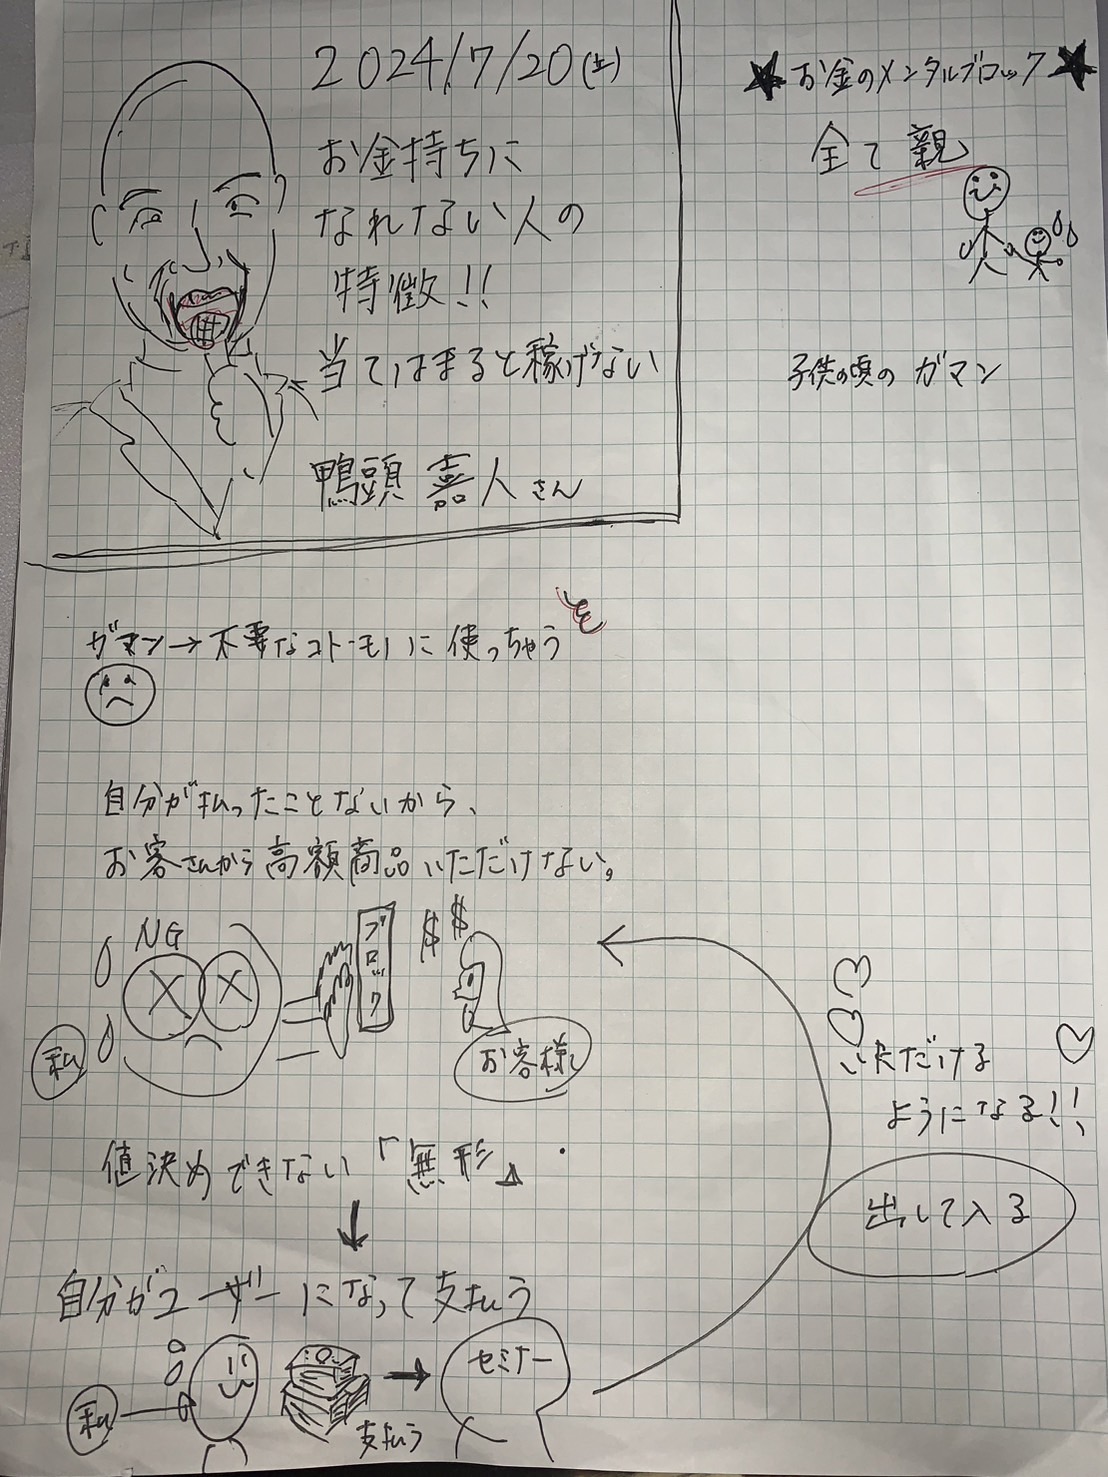 2024/7/20(土)
お金持ちに
なれない人の
特徴!!
当てはまると稼げない
鴨頭 嘉人さん
★お金のメンタルブロック★
全て親
子供の頃のガマン
ガマン→不要なコト・モノに使っちゃう
自分が払ったことないから、
お客さんから高額商品いただけない。
NG
ブロック
$$
私
お客様
いただける
ようになる!!
値決めできない「無形」
出して入る
自分がユーザーになって支払う
私
支払う
セミナー